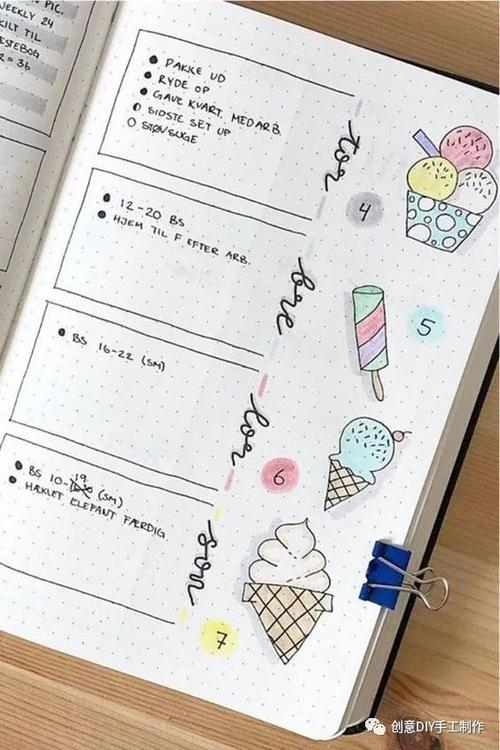 PIC.
WEEKLY 24
TIL
= 36
PAKKE UD
RYDE OP
GAVE KVART. MEDARB.
SIDSTE SET UP
STØVSUGE
tor
4
12-20 BS
HJEM TIL F. EFTER ARB.
fre
5
BS 16-22 (SM)
lør
6
BS 10-19 (SM)
HÆKLET ELEFANT FÆRDIG
søn
7
创意DIY手工制作